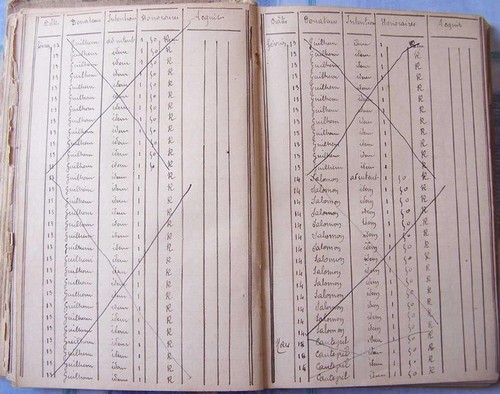 Date Donateur Intention Honoraires Acquit
13 Guilhem ad intent 1 50 R
13 Guilhem idem 1 50 R
13 Guilhem idem 1 50 R
13 Guilhem idem 1 50 R
13 Guilhem idem 1 50 R
13 Guilhem idem 1 50 R
13 Guilhem idem 1 50 R
13 Guilhem idem 1 50 R
13 Guilhem idem 1 50 R
13 Guilhem idem 1 50 R
13 Guilhem idem 1 50 R
13 Guilhem idem 1 50 R
13 Guilhem idem 1 R
13 Guilhem idem 1 R
13 Guilhem idem 1 R
13 Guilhem idem 1 R
13 Guilhem idem 1 R
13 Guilhem idem 1 R
13 Guilhem idem 1 R
13 Guilhem idem 1 R
13 Guilhem idem 1 R
13 Guilhem idem 1 R
13 Guilhem idem 1 R
13 Guilhem idem 1 R
13 Guilhem idem 1 R
13 Guilhem idem 1 R
13 Guilhem idem 1 R
13 Guilhem idem 1 R
13 Guilhem idem 1 R
13 Guilhem idem 1 R
Date Donateur Intention Honoraires Acquit
13 Guilhem idem 1 R
13 Guilhem idem 1 R
13 Guilhem idem 1 R
13 Guilhem idem 1 R
13 Guilhem idem 1 R
13 Guilhem idem 1 R
13 Guilhem idem 1 R
13 Guilhem idem 1 R
13 Guilhem idem 1 R
13 Guilhem idem 1 R
13 Guilhem idem 1 R
13 Guilhem idem 1 R
14 Salomon ad intent 1 50 R
14 Salomon idem 1 50 R
14 Salomon idem 1 50 R
14 Salomon idem 1 50 R
14 Salomon idem 1 50 R
14 Salomon idem 1 50 R
14 Salomon idem 1 50 R
14 Salomon idem 1 50 R
14 Salomon idem 1 50 R
14 Salomon idem 1 50 R
14 Salomon idem 1 50 R
14 Salomon idem 1 50 R
14 Salomon idem 1 50 R
14 Salomon idem 1 50 R
idem 1 50 R
idem 1 50 R
idem 1 50 R
idem 1 50 R